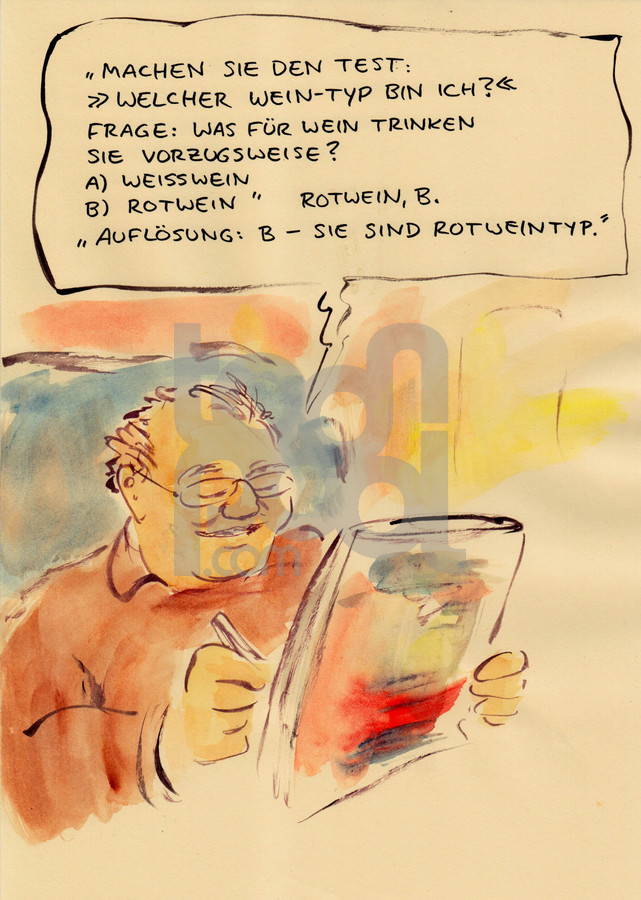 „MACHEN SIE DEN TEST:
»WELCHER WEIN-TYP BIN ICH?«
FRAGE: WAS FÜR WEIN TRINKEN
SIE VORZUGSWEISE?
A) WEISSWEIN
B) ROTWEIN" ROTWEIN, B.
„AUFLÖSUNG: B – SIE SIND ROTWEINTYP."
toonpool
.com